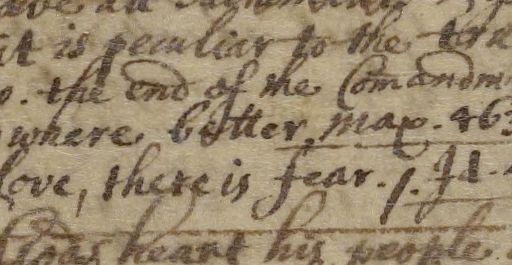 it is peculiar to the tru
. the end of the Comandm
where better, max. 463
love, there is fear. 1. Jt.
heart his people